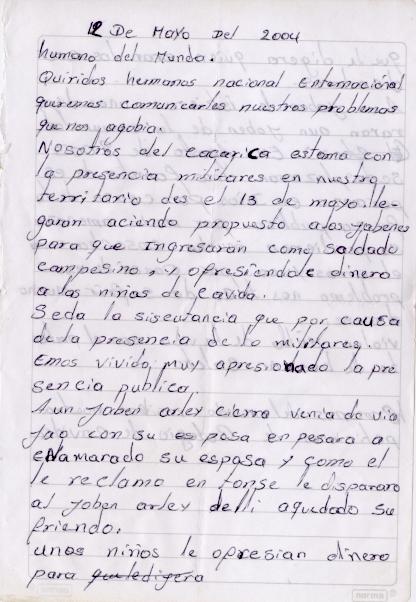 12 De Mayo Del 2004
humano del Mundo.
Quiridos humanos nacional Enternacional
queremos comunicarles nuestros problemas
que nos agobia.
Nosotros del cacarica estamo con
la presencia militares en nuestro
territario des el 13 de mayo lle-
garon aciendo propuesto a los jabenes
para que Ingresaran como soldado
campesino, y ofresiendole dinero
a las niñas de Cavida.
Seda la siscutancia que por causa
de la presencia de lo militares.
Emos vivido, muy apresionado la pre
sencia publica.
A un jaben arley cierra venia de via
jao con su esposa enpesara a
eNamarado su espasa y como el
le reclamo en fonse le dispararo
al joben arley delli aquedado su
friendo.
unos niños le ofresian dinero
para queledigera
norma